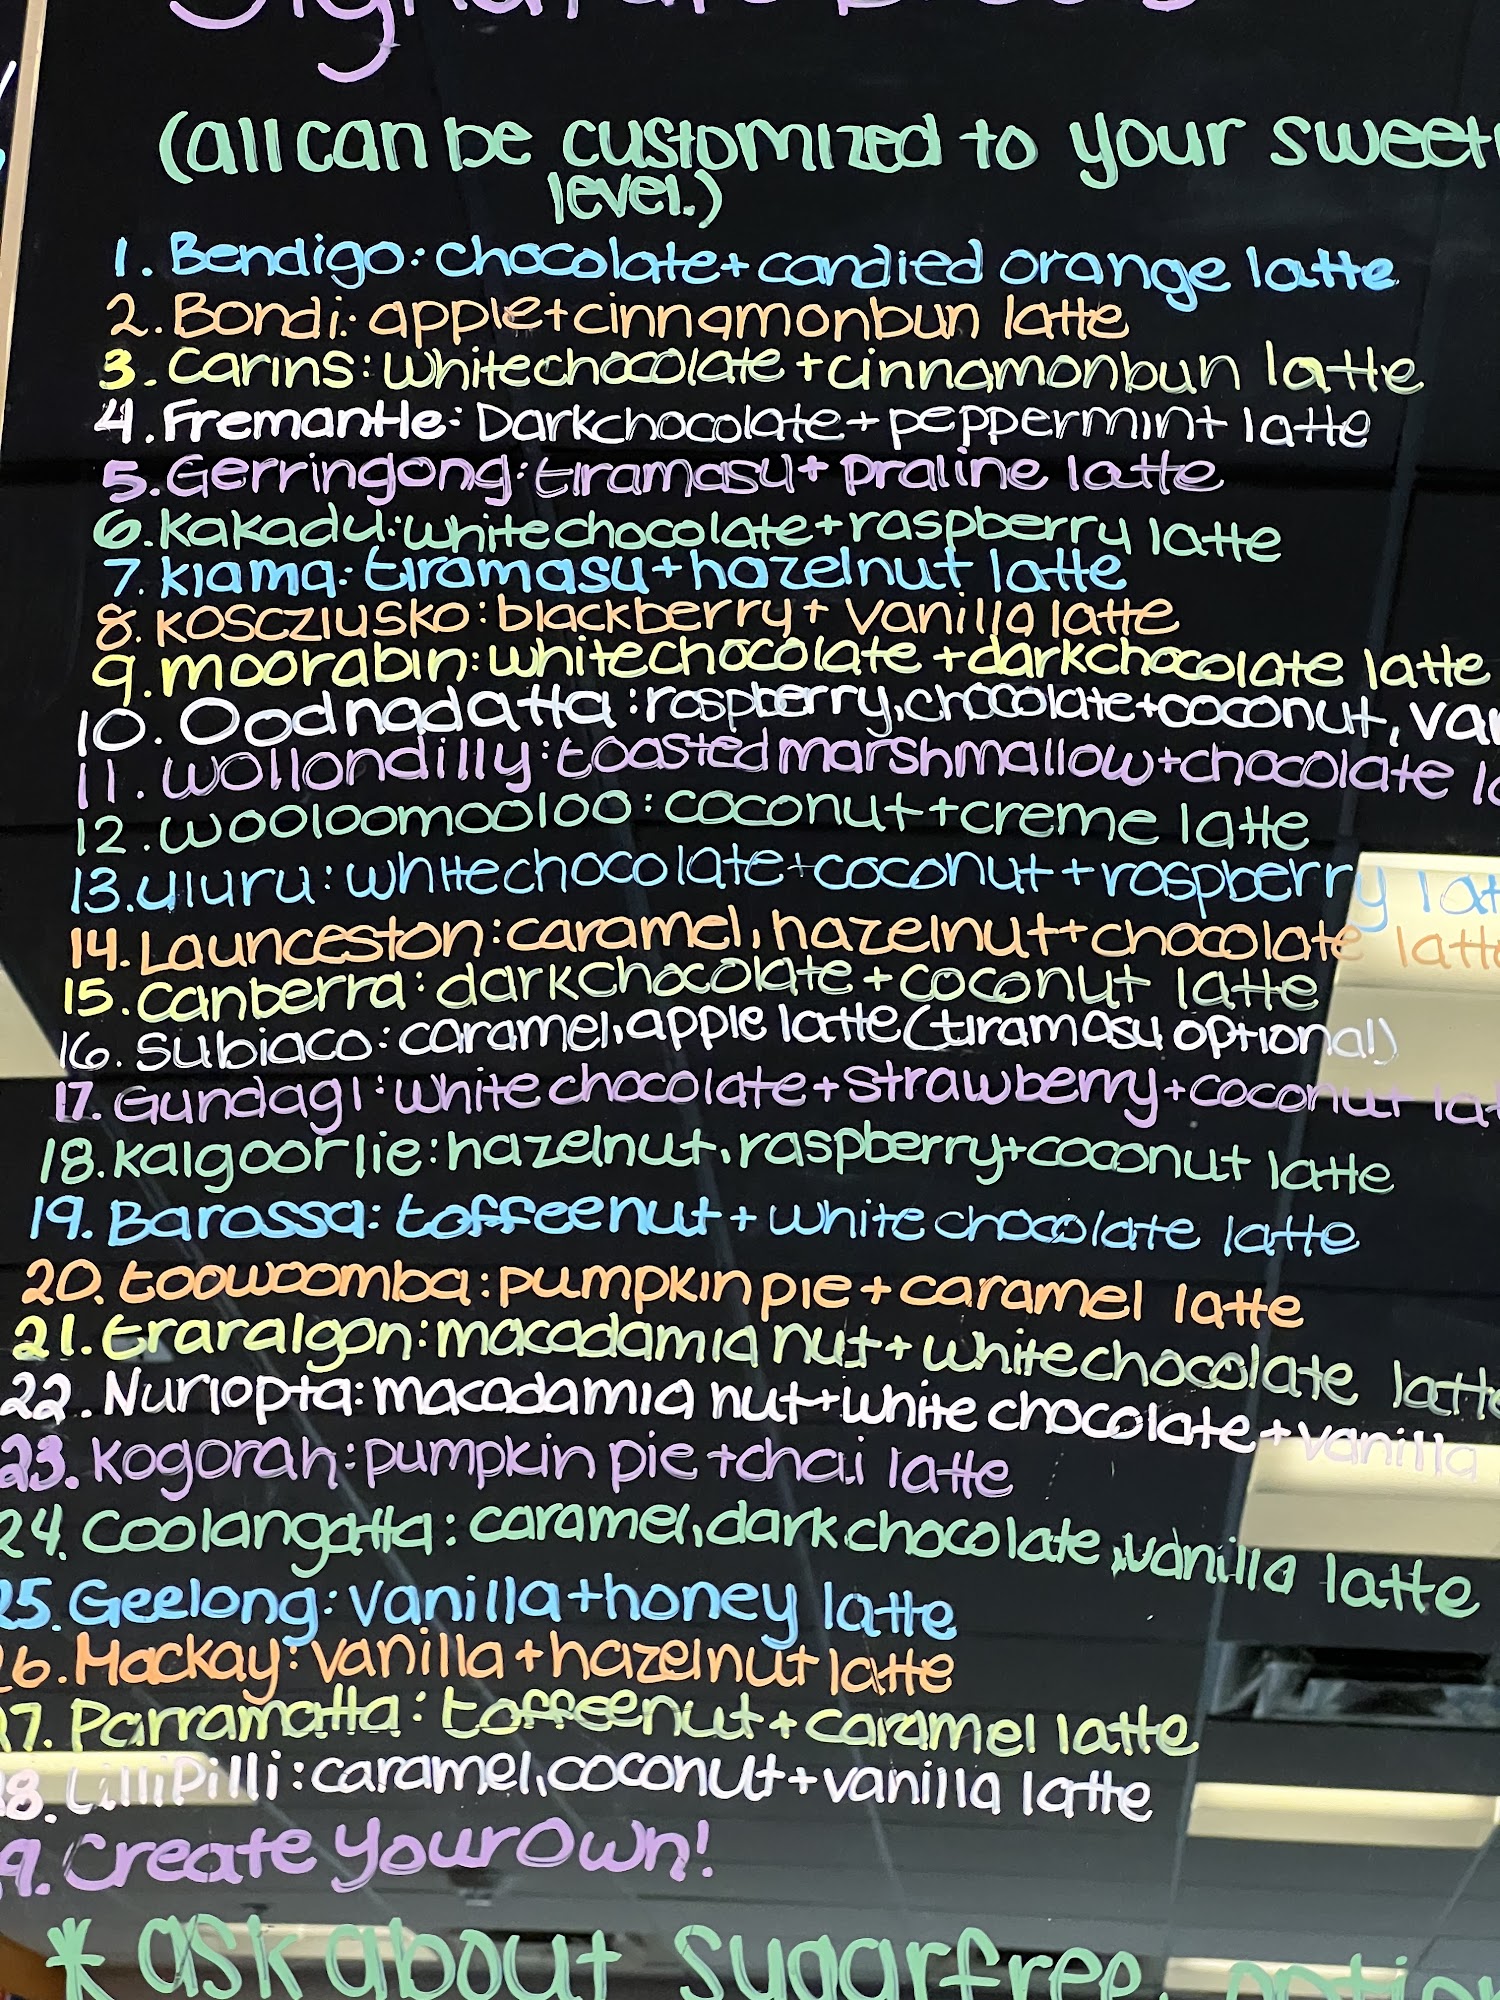 (all can be customized to your
level.)
1. Bendigo: chocolate + candied orange latte
2. Bondi: apple + cinnamonbun latte
3. Carins: whitechocolate + cinnamonbun latte
4. Fremantle: Darkchocolate + peppermint latte
5. Gerringong: tiramasu + praline latte
6. Kakadu: whitechocolate + raspberry latte
7. Kiama: tiramasu + hazelnut latte
8. Koscziusko: blackberry + vanilla latte
9. moorabin: whitechocolate + darkchocolate latte
10. Oodnadatta: raspberry, chocolate + coconut,
11. Wollondilly: toasted marshmallow + chocolate
12. Wooloomooloo: coconut + creme latte
13. uluru: whitechocolate + coconut + raspberry
14. Launceston: caramel, hazelnut + chocolate latte
15. Canberra: darkchocolate + coconut latte
16. Subiaco: caramel, apple latte (tiramasu optional)
17. Gundagi: white chocolate + strawberry + coconut
18. Kalgoorlie: hazelnut, raspberry + coconut latte
19. Barossa: toffeenut + white chocolate latte
20. toowoomba: pumpkin pie + caramel latte
21. traralgon: macadamia nut + whitechocolate latte
22. Nuriopta: macadamia nut + white chocolate + vanilla
23. Kogorah: pumpkin pie + chai latte
24. Coolangatta: caramel, dark chocolate, vanilla latte
25. Geelong: vanilla + honey latte
26. Mackay: vanilla + hazelnut latte
27. Parramatta: toffeenut + caramel latte
28. LilliPilli: caramel, coconut + vanilla latte
29. Create your Own!
* ask about sugarfree